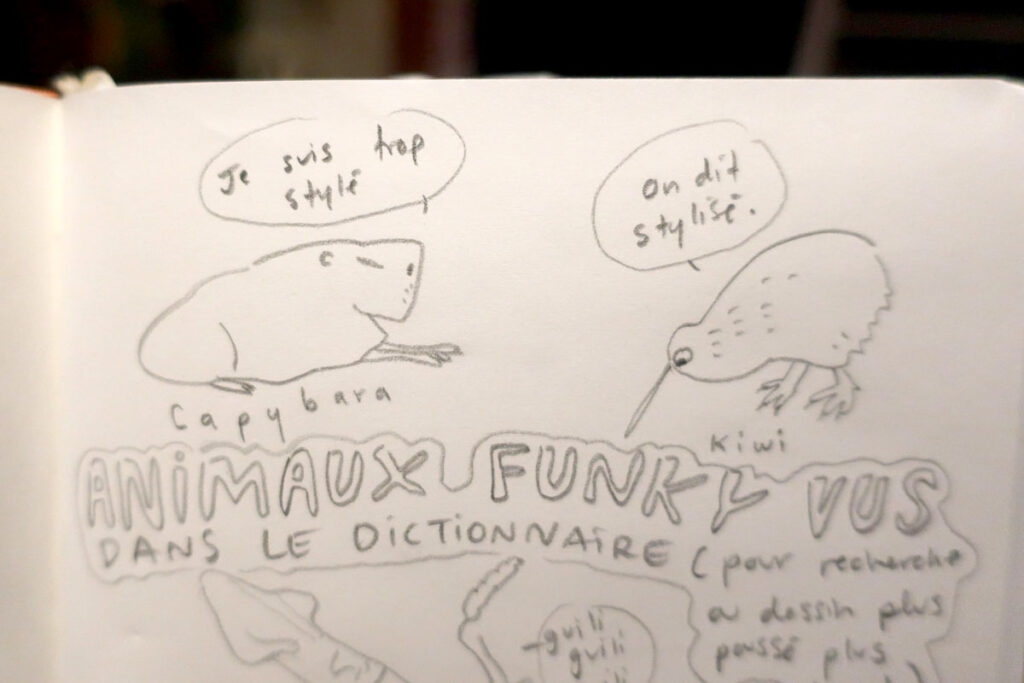 Je suis trop
stylé
On dit
stylisé.
Capybara
Kiwi
ANIMAUX FUNKY VUS
DANS LE DICTIONNAIRE (pour recherche
a dessin plus
poussé plus
guili
guili